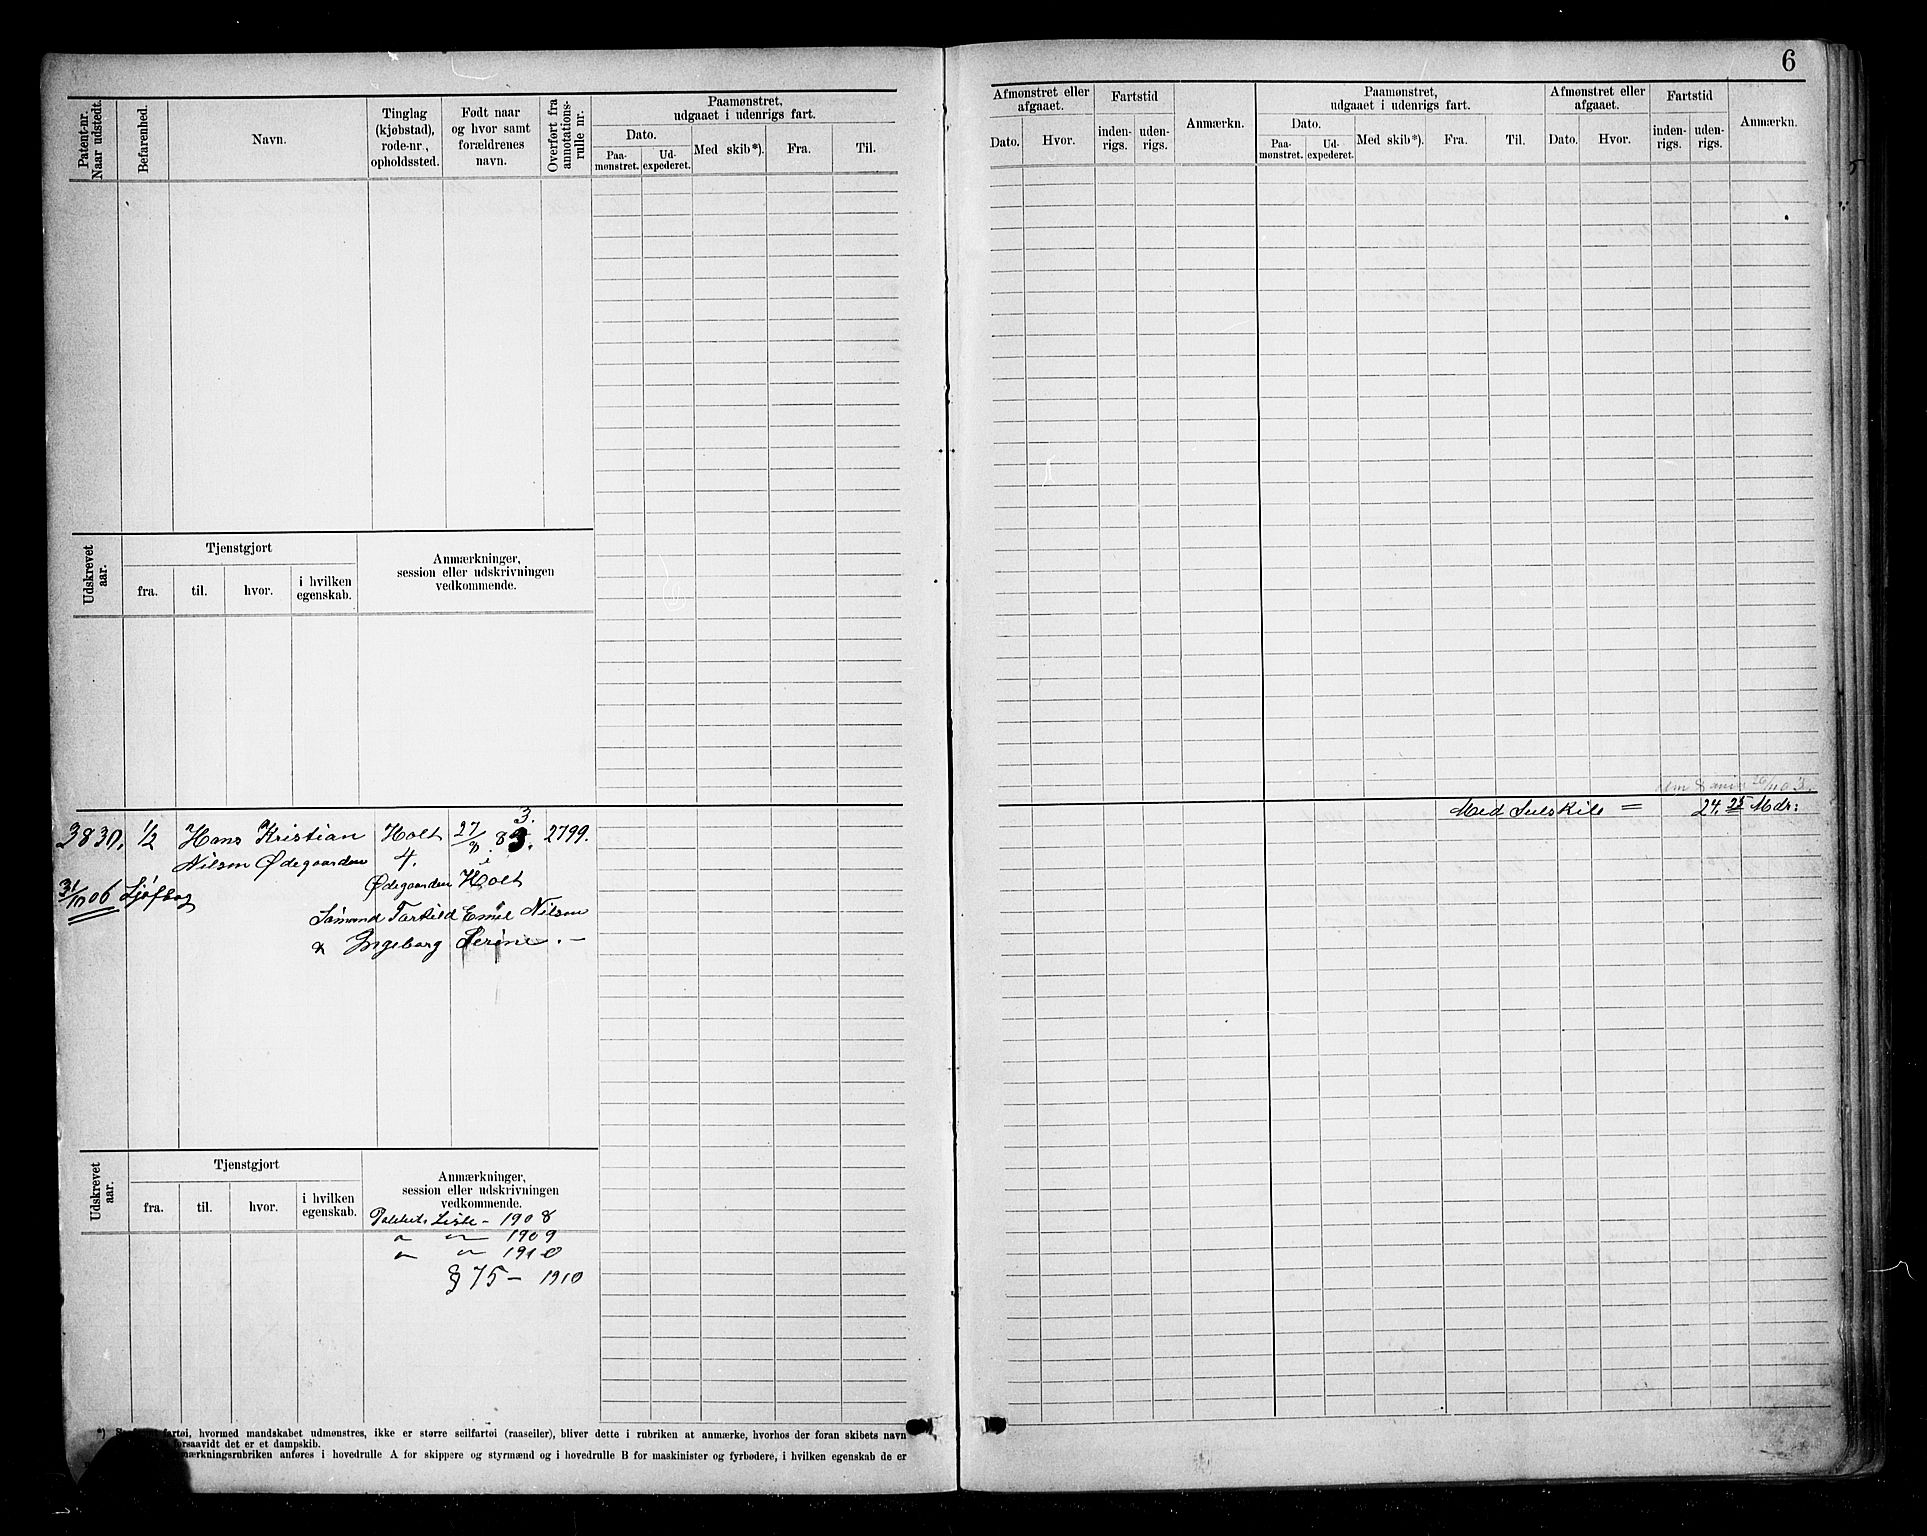 6
Patent-nr. Naar udstedt.
Befarenhed.
Navn.
Tinglag (kjøbstad), rode-nr., opholdssted.
Født naar og hvor samt forældrenes navn.
Overført fra annotations-rulle nr.
Paamønstret, udgaaet i udenrigs fart.
Dato.
Paa-mønstret.
Ud-expederet.
Med skib*).
Fra.
Til.
Afmønstret eller afgaaet.
Dato.
Hvor.
Fartstid
inden-rigs.
uden-rigs.
Anmærkn.
Paamønstret, udgaaet i udenrigs fart.
Dato.
Paa-mønstret.
Ud-expederet.
Med skib*).
Fra.
Til.
Afmønstret eller afgaaet.
Dato.
Hvor.
Fartstid
inden-rigs.
uden-rigs.
Anmærkn.
Udskrevet aar.
Tjenstgjort
fra.
til.
hvor.
i hvilken egenskab.
Anmærkninger, session eller udskrivningen vedkommende.
Med Seilskib = 24.25 Mdr:
3830, 1/2 Hans Kristian Holt 27/ 83. 2799.
Nilsen Ødegaarden 4. i
31/10 06 Ødegaarden Holt
Torkild Emil Nilsen
& Ingeborg Serine. —
Udskrevet aar.
Tjenstgjort
fra.
til.
hvor.
i hvilken egenskab.
Anmærkninger, session eller udskrivningen vedkommende.
Liste - 1908
" " 1909
" " 1910
§ 75 - 1910
fartøi, hvormed mandskabet udmønstres, ikke er større seilfartøi (raaseiler), bliver dette i rubriken at anmærke, hvorhos der foran skibets navn
forsaavidt det er et dampskib.
mærkningsrubriken anføres i hovedrulle A for skippere og styrmænd og i hovedrulle B for maskinister og fyrbødere, i hvilken egenskab de er